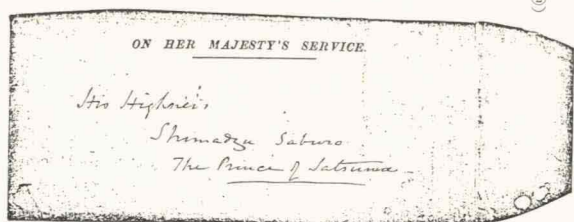 ON HER MAJESTY'S SERVICE.
His Highness
Shimadzu Saburo
The Prince of Satsuma